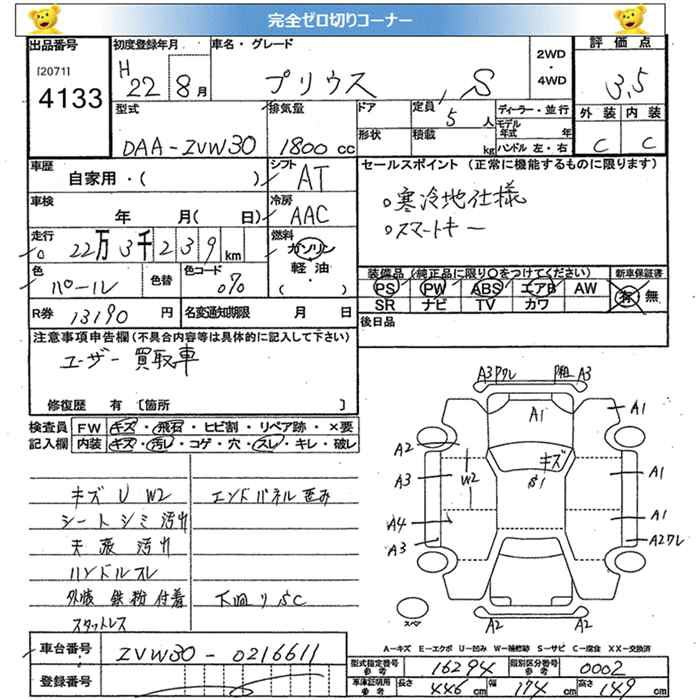 完全ゼロ切りコーナー
出品番号 初度登録年月 車名・グレード 2WD・4WD 評価点
[2071] 4133 H22 8月 プリウス S 3.5
型式 排気量 ドア 定員 5人 ディーラー・並行 外装 内装
DAA-ZVW30 1800cc 形状 積載 kg モデル年式 年 ハンドル 左・右 C C
車歴 自家用・( ) シフト AT セールスポイント (正常に機能するものに限ります)
車検 年 月( 日) 冷房 AAC 。寒冷地仕様
走行 22万3千239km 燃料 ガソリン 軽油・( ) 。スマートキー
色 パール 色替 色コード 070 装備品(純正品に限り○をつけてください) 新車保証書
PS PW ABS エアB AW 有・無
SR ナビ TV カワ
R券 13190円 名変通知期限 月 日 後日品
注意事項申告欄(不具合内容等は具体的に記入して下さい)
ユーザー買取車
修復歴 有 [箇所 ]
検査員 FW キズ・飛石・ヒビ割・リペア跡・×要
記入欄 内装 キズ・汚レ・コゲ・穴・スレ・キレ・破レ
キズ U W2 エンドパネル歪み
シートシミ汚れ
天張汚れ
ハンドルスレ
外装鉄粉付着 下回りSC
スタットレス
A3ワレ A3
A1 A1
A2 キズ
A3 W2 S1 A1
A4 A1
A3 A2ワレ
スペア A2 A2
A-キズ E-エクボ U-凹み W-補修跡 S-サビ C-腐食 XX-交換済
車台番号 ZVW30-0216611
型式指定番号 参考 16294 類別区分番号 参考 0002
登録番号 車庫証明用 参考 長さ 446cm 幅 174cm 高さ 149cm